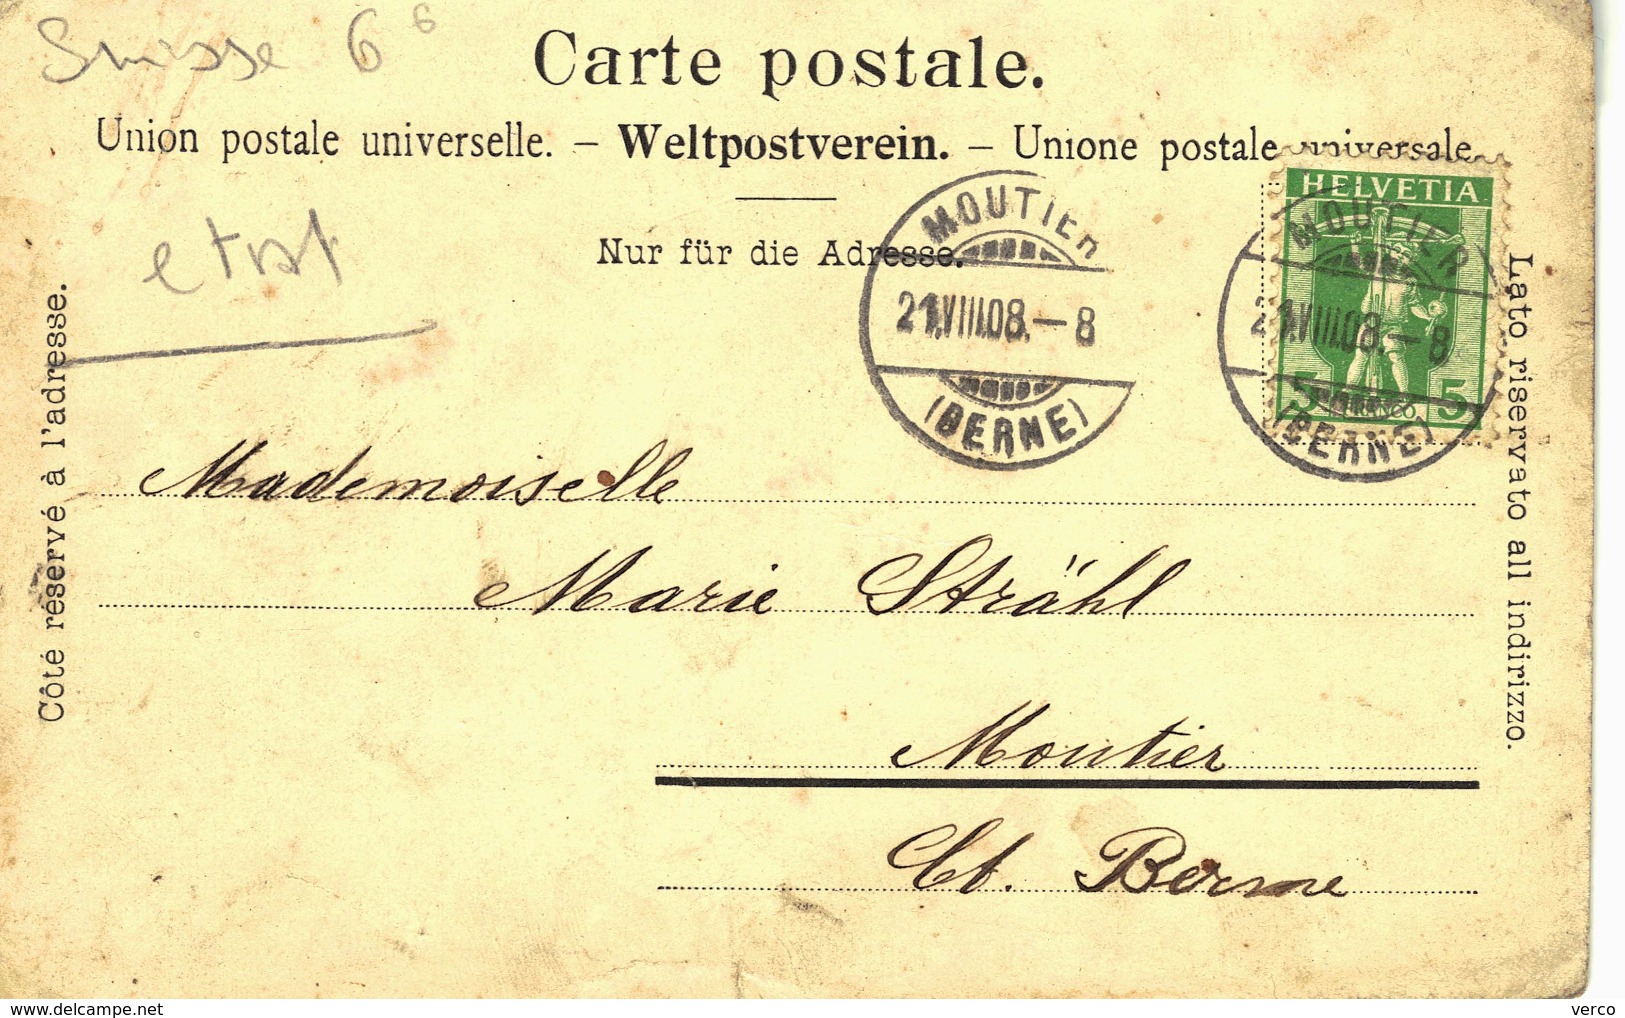 Suisse 6 6
Carte postale.
Union postale universelle. – Weltpostverein. – Unione postale universale
HELVETIA
MOUTIER
MOUTIER
Nur für die Adresse.
21.VIII.08.–8
21.VIII.08.–8
5 FRANCO 5
(BERNE)
(BERNE)
Côté réservé à l'adresse.
Lato riservato all indirizzo.
Mademoiselle
Marie Strähl
Moutier
Ct. Berne
verco